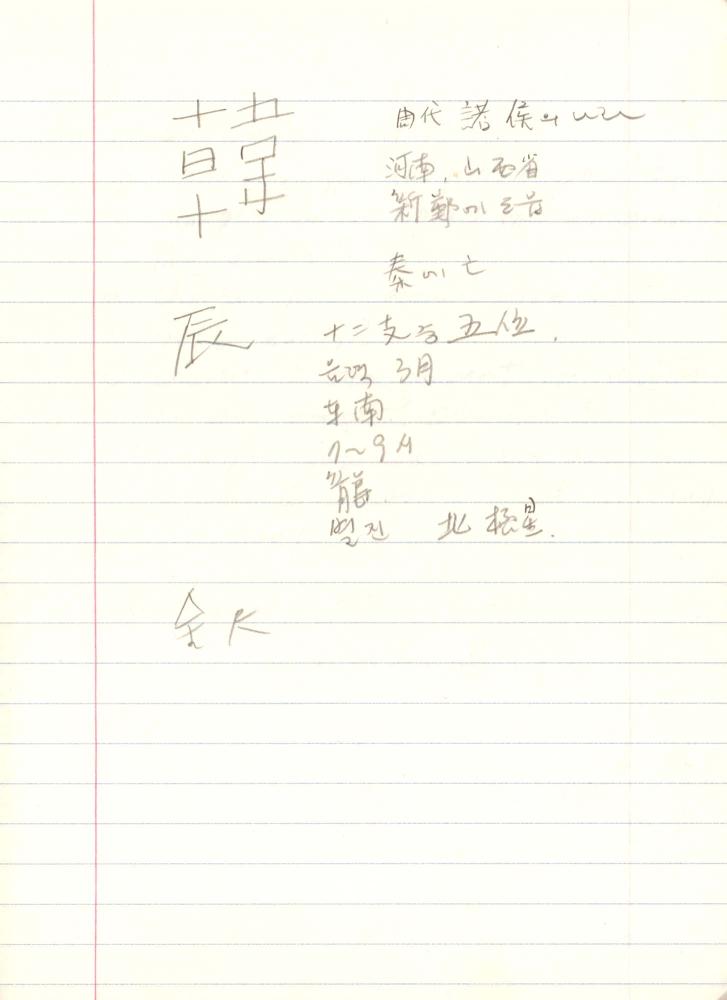 韓 周代 諸侯의 나라
河南, 山西省
新鄭에 도읍
秦에 亡
辰 十二支중 五位.
음력 3月
东南
7~9시
龍
별진 北極星.